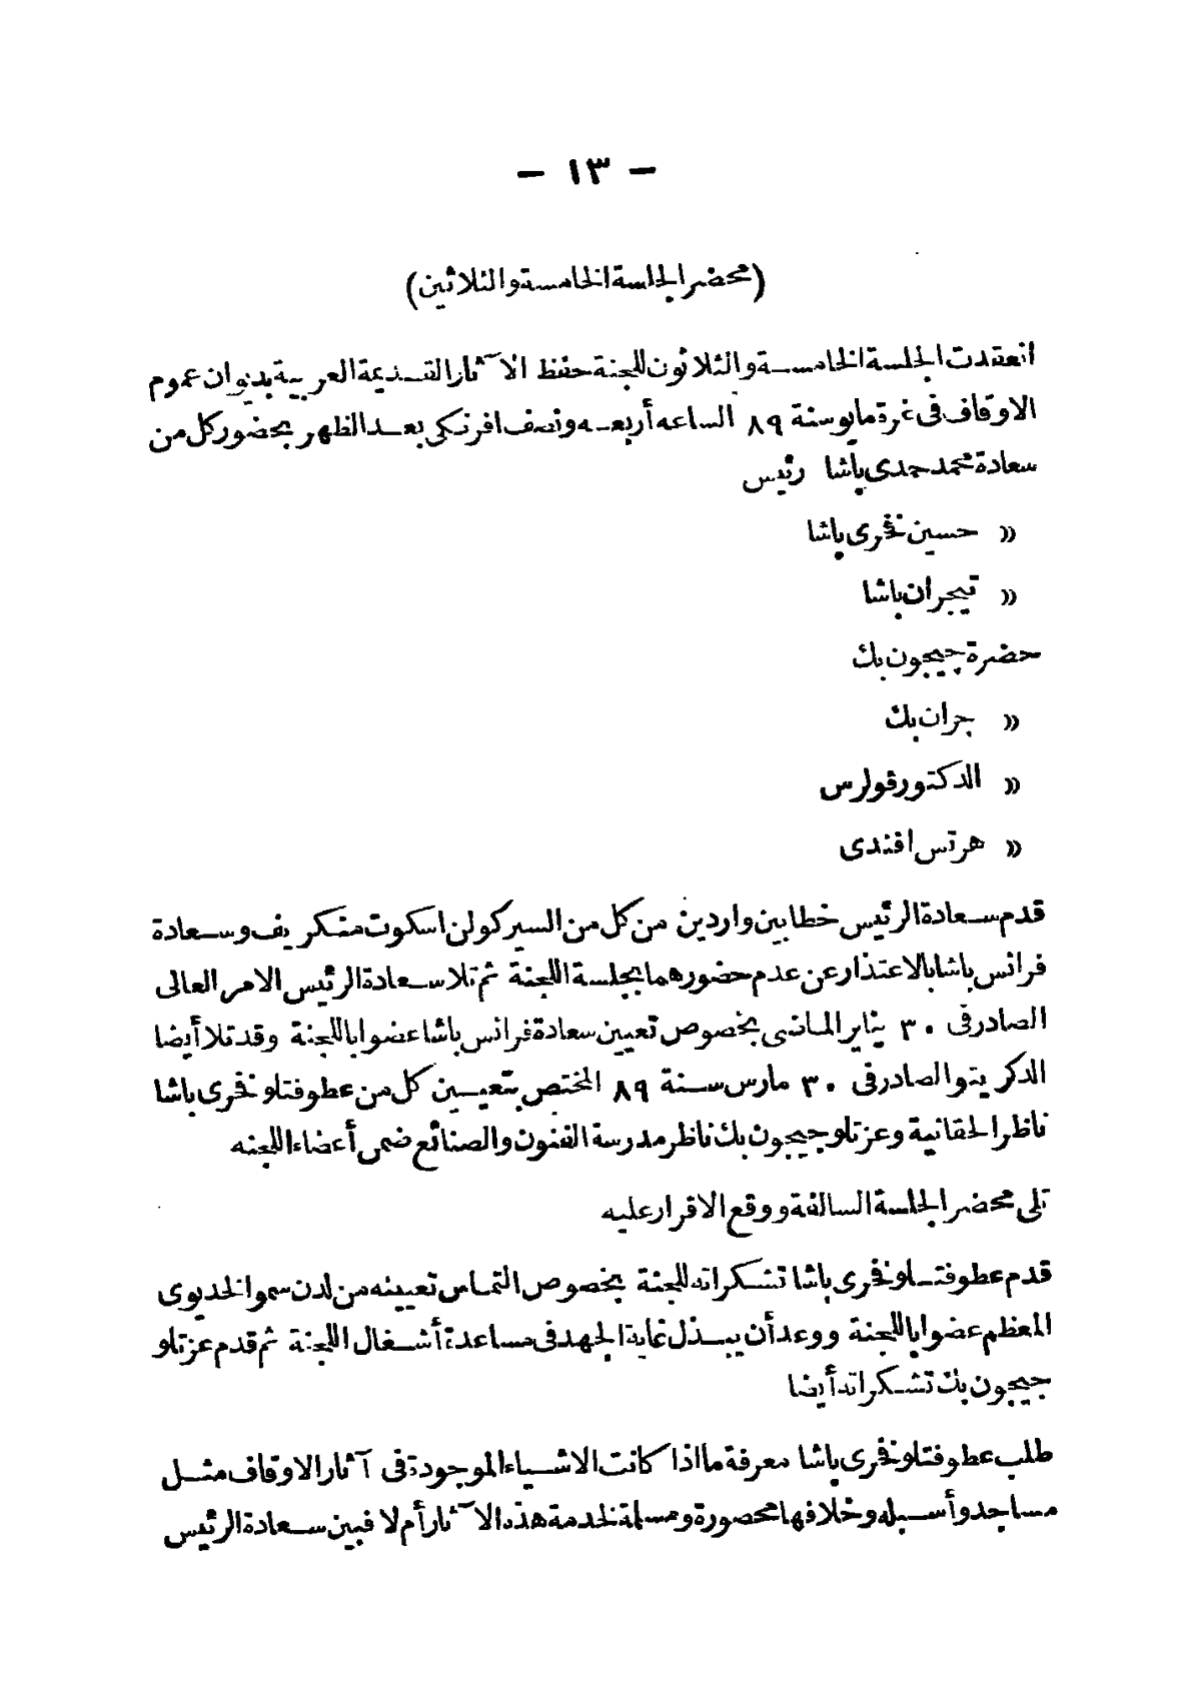 — ١٣ —
(محضر الجلسة الخامسة والثلاثين)
انعقدت الجلسة الخامسة والثلاثون للجنة حفظ الآثار القديمة العربية بديوان عموم
الاوقاف فى غرة مايو سنة ٨٩ الساعه أربعه ونصف افرنكى بعد الظهر بحضور كل من
سعادة محمد حمدى باشا رئيس
» حسين فخرى باشا
» تيجران باشا
حضرة جيجون بك
» جران بك
» الدكتور ڤولرس
» هرتس افندى
قدم سعادة الرئيس خطابين واردين من كل من السير كولن اسكوت منكريف وسعادة
فرانس باشا بالاعتذار عن عدم حضورهما بجلسة اللجنة ثم تلا سعادة الرئيس الامر العالى
الصادر فى ٣٠ يناير الماضى بخصوص تعيين سعادة فرانس باشا عضوا باللجنة وقد تلا أيضا
الدكريتو الصادر فى ٣٠ مارس سنة ٨٩ المختص بتعيين كل من عطوفتلو فخرى باشا
ناظر الحقانية وعزتلو جيجون بك ناظر مدرسة الفنون والصنائع ضمى أعضاء اللجنه
تلى محضر الجلسة السالفة ووقع الاقرار عليه
قدم عطوفتلو فخرى باشا تشكراته للجنة بخصوص التماس تعيينه من لدن سمو الخديوى
المعظم عضوا باللجنة ووعد أن يبذل غاية الجهد فى مساعدة أشغال اللجنة ثم قدم عزتلو
جيجون بك تشكراته أيضا
طلب عطوفتلو فخرى باشا معرفة ما اذا كانت الاشياء الموجودة فى آثار الاوقاف مثل
مساجد وأسبله وخلافها محصورة ومسلمة لخدمة هذه الآثار أم لا فبين سعادة الرئيس